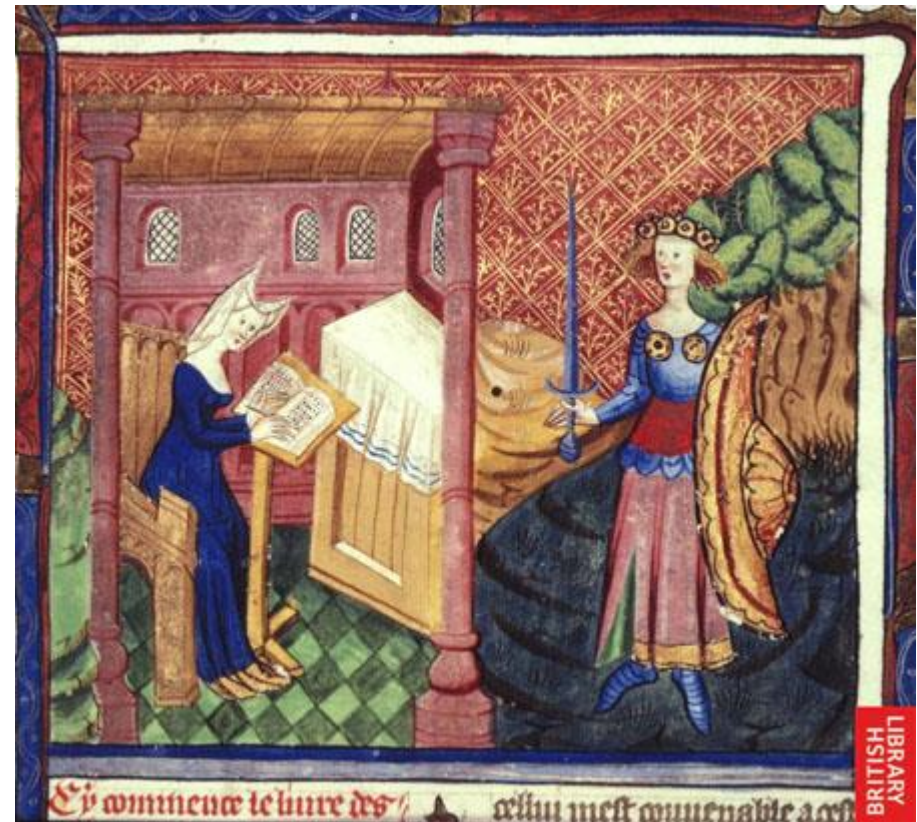 Cy commence le livre des
cellui mest couuenable a cest
BRITISH
LIBRARY